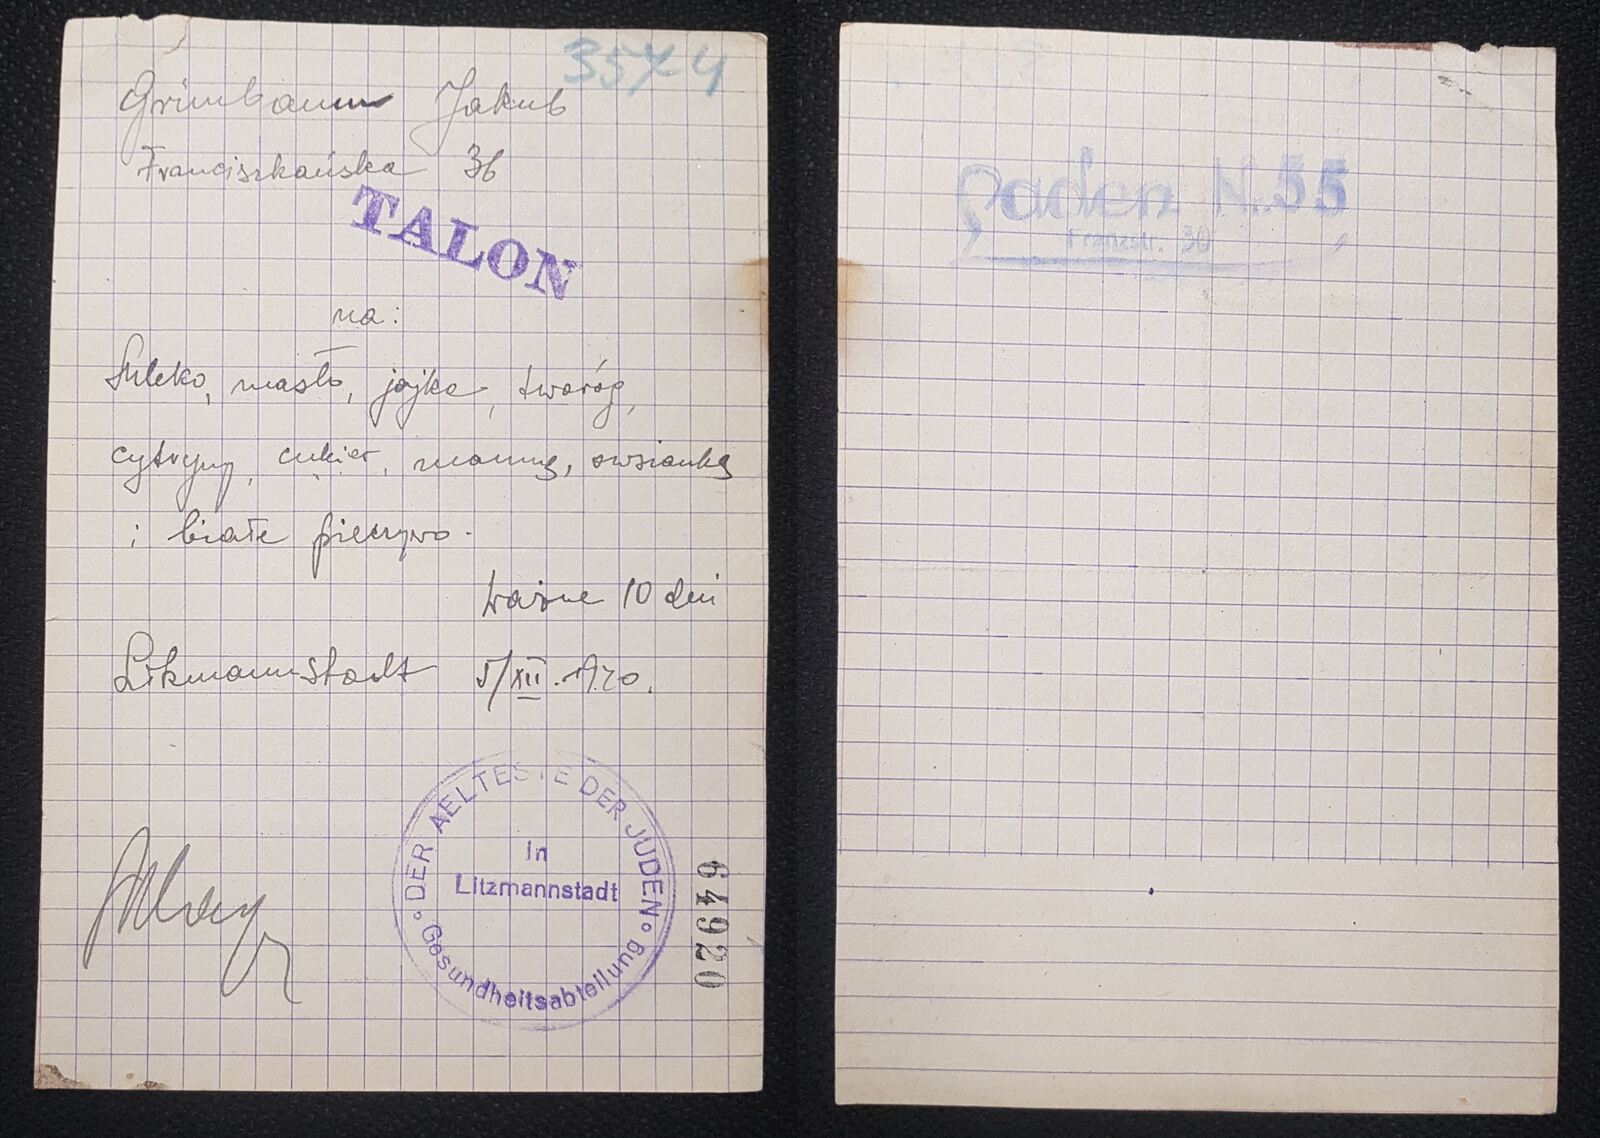 3574
Grünbaum Jakub
Franciszkańska 36
TALON
na:
Mleko, masło, jajka, twaróg,
cytryny, cukier, mannę, owsiankę
i białe pieczywo.
Ważne 10 dni
Litzmannstadt 5/XII.1940.
DER AELTESTE DER JUDEN
in
Litzmannstadt
Gesundheitsabteilung
64920
Laden N. 55
Franzstr. 30